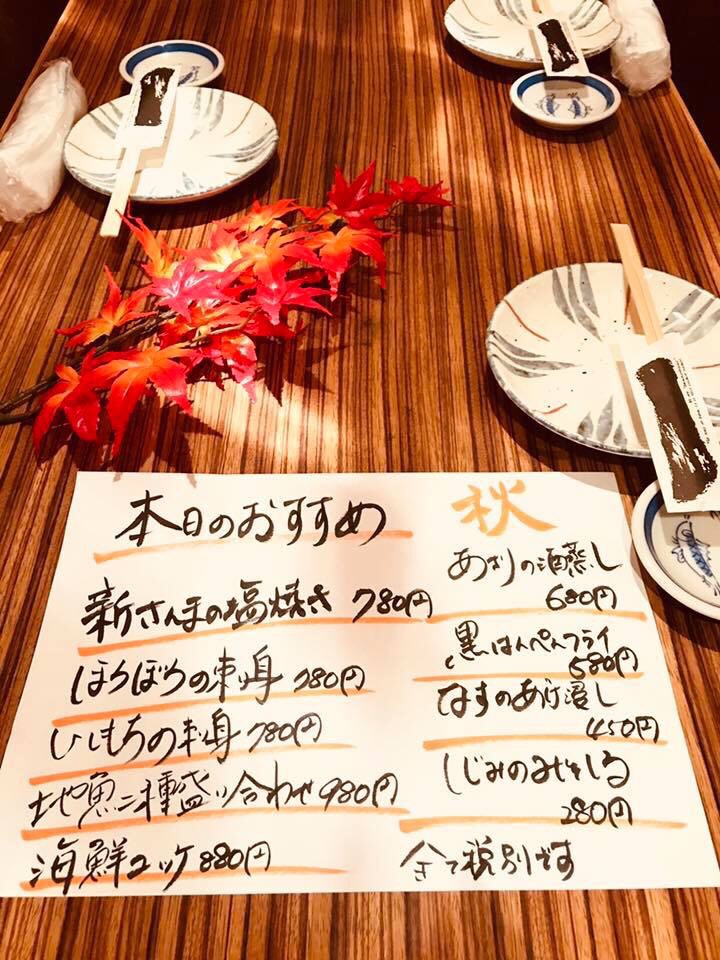 本日のおすすめ
新さんまの塩焼き 780円
ほうぼうの刺身 780円
いしもちの刺身 780円
地魚二種盛り合わせ 980円
海鮮ユッケ 880円
秋
あさりの酒蒸し
680円
黒はんぺんフライ
580円
なすのあげ浸し
450円
しじみのみそしる
280円
全て税別です